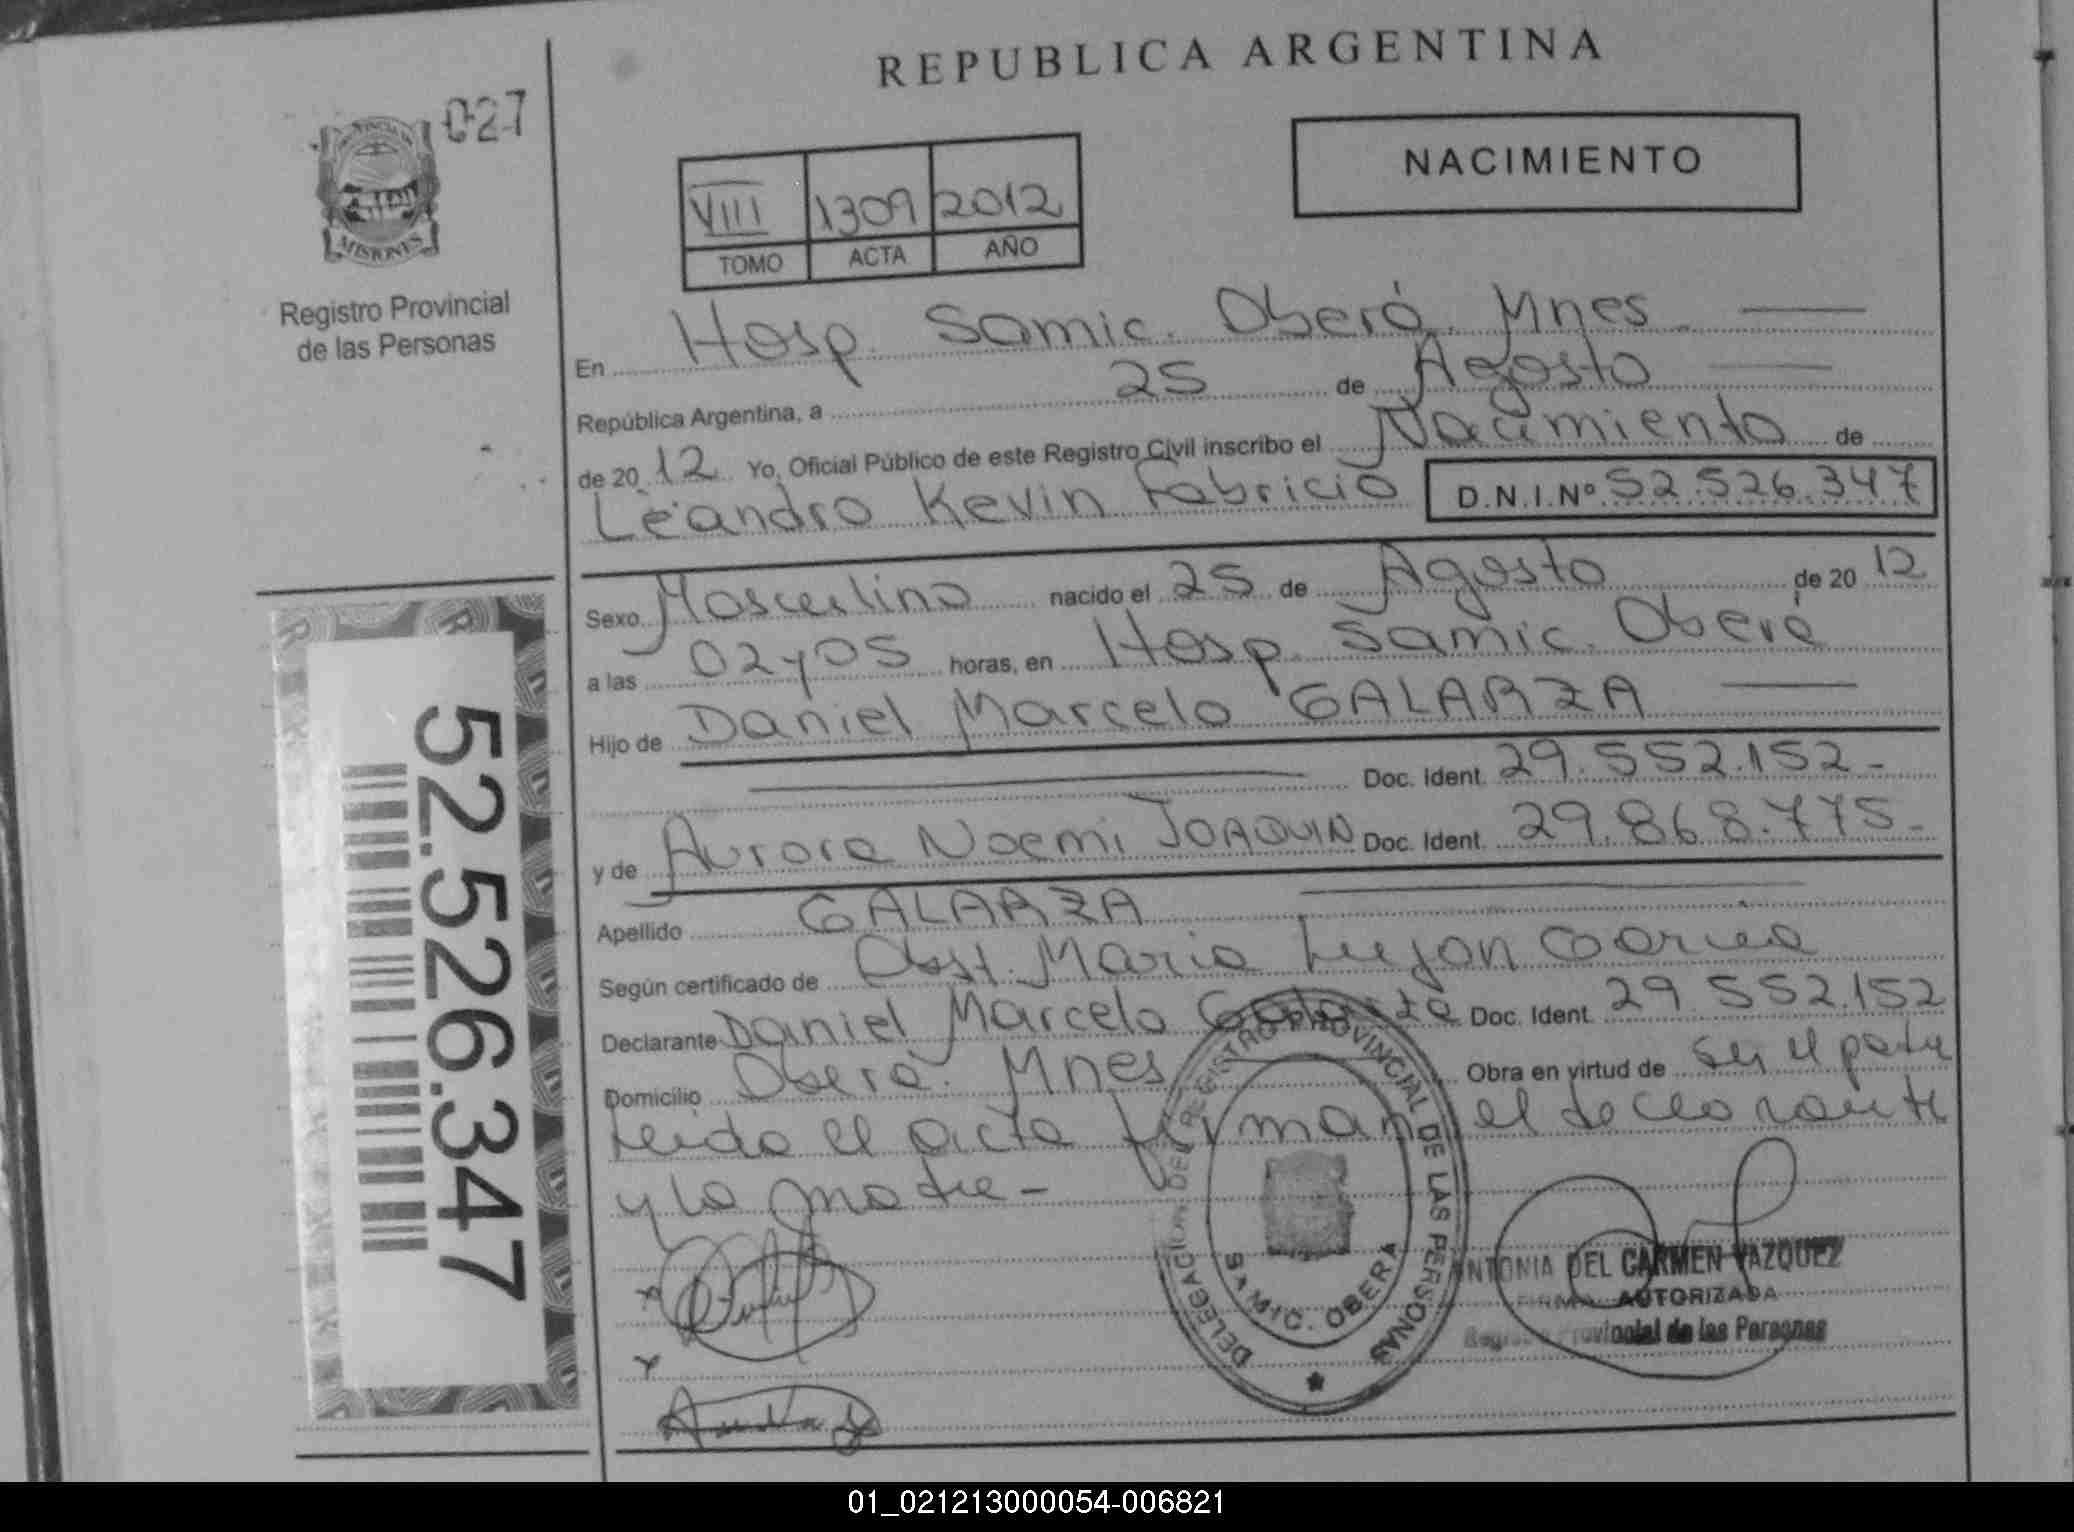 REPUBLICA ARGENTINA
027
PROVINCIA DE
MISIONES
Registro Provincial
de las Personas
NACIMIENTO
VIII 1309 2012
TOMO ACTA AÑO
En Hosp. Samic. Oberá. Mnes
República Argentina, a 25 de Agosto
de 20 12 Yo, Oficial Público de este Registro Civil inscribo el Nacimiento de
Leandro Kevin Fabricio D.N.I.Nº 52.526.347
Sexo Masculino nacido el 25 de Agosto de 20 12
a las 02 y 05 horas, en Hosp. Samic. Oberá
Hijo de Daniel Marcelo GALARZA
Doc. Ident. 29.552.152-
y de Aurora Noemi JOAQUIN Doc. Ident. 29.868.775-
Apellido GALARZA
Según certificado de Obst. Maria Lujan Correa
Declarante Daniel Marcelo Galarza Doc. Ident. 29.552.152
Domicilio Oberá. Mnes Obra en virtud de ser el padre
Leida el acta firman el declarante
y la madre-
52.526.347
DELEGACION DEL REGISTRO PROVINCIAL DE LAS PERSONAS
SAMIC. OBERA
ANTONIA DEL CARMEN VAZQUEZ
FIRMA AUTORIZADA
Registro Provincial de las Personas
01_021213000054-006821